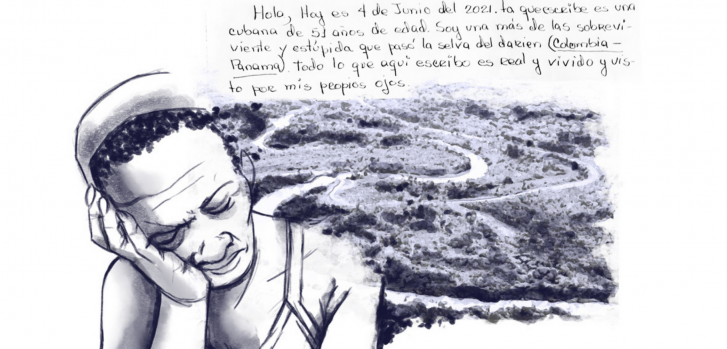 Hola, Hoy es 4 de Junio del 2021. la que escribe es una
cubana de 51 años de edad. Soy una más de las sobrevi-
viente y estúpida que pasó la selva del darien (Colombia -
Panamá). Todo lo que aqui escribo es real y vivido y vis-
to por mis propios ojos.